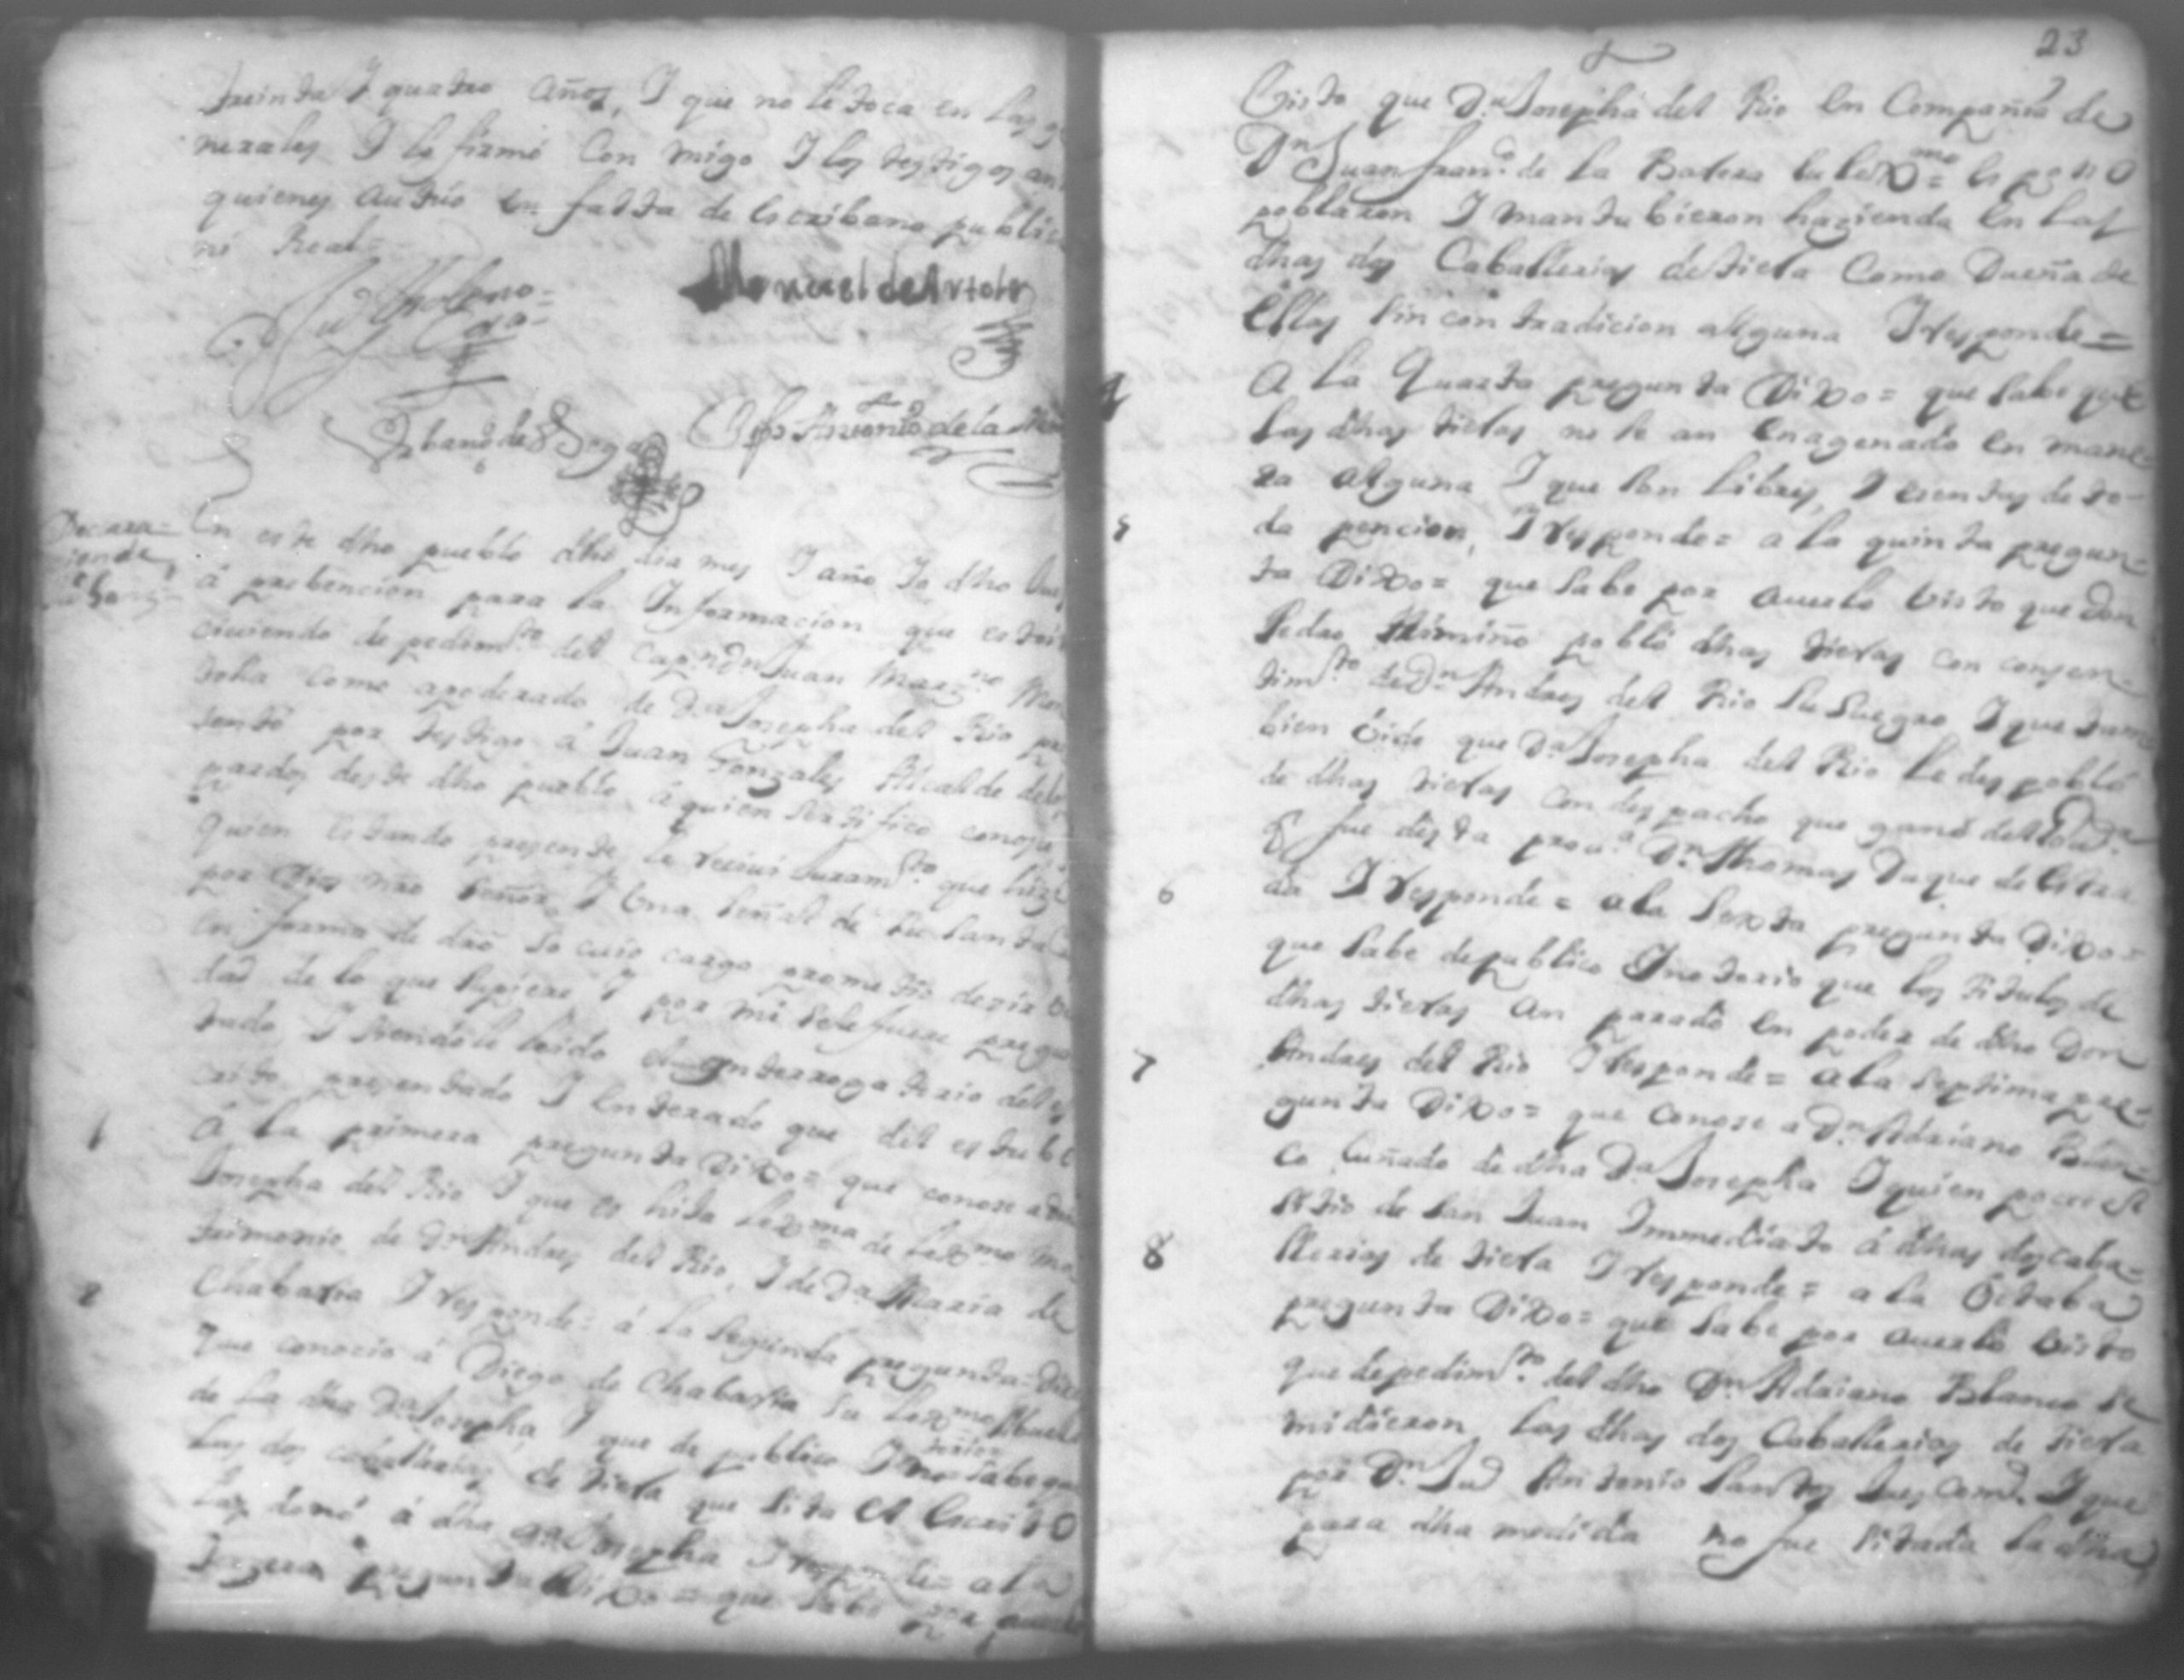 treinta I quatro años, I que no le toca en las ge
nerales I lo firmó Con migo I los testigos an
quienes autuo en falta de escribano public
ni Real=
Manuel de Artola
Antonio de la
En este dho pueblo dho dia mes I año Io dho Jues
á prebencion para la Informacion que estoi
ciuiendo de pedimto del Capn Dn Juan Marno Mon
toha como apoderado de Da Josepha del Rio pre
sentó por testigo á Juan Gonzales Alcalde delos
pardos deste dho pueblo á quien sertifico conosco
quien estando presente le reciui Juramto que hizo
por Dios nro Señor, I Una señal de su santa Cr
en forma de dro so cuio cargo prometio dezir ve
dad de lo que supiere I por mi sele fuere pregun
tado, I siendole leido el Interrogatorio del es
crito presentado I enterado que dél estubo
1 á la primera pregunta Dixo= que conose a Da
Josepha del Rio I que es hija lexma de lexmo ma
trimonio de Dn Andres del Rio, I de Da Maria de
2 Chabarria I responde= á la segunda pregunta Dixo
que conocio á Diego de Chabarria su lexmo Abuelo
de la dha Da Josepha I que de publico I notorio sabe que
las dos caballerias de tierra que sita el Escrito
las donó á dha Da Josepha I responde= a la
tersera pregunta Dixo= que sabe por auerlo
23
Visto que Da Josepha del Rio en Compañia de
Dn Juan Franco de la Batera su lexmo esposo
poblaron I mantubieron hazienda en las
dhas dos Caballerias de tierra Como Dueña de
Ellas sin contradicion alguna I responde=
4 A la Quarta pregunta Dixo= que sabe que
las dhas tierras no se an Enagenado en mane
ra alguna I que son libres, I esentas de to-
5 da pencion, I responde= a la quinta pregun-
ta Dixo= que sabe por auerlo visto que Don
Pedro Mimiño pobló dhas tierras con consen-
timto de Dn Andres del Rio su suegro I que tam
bien óido que Da Josepha del Rio le despobló
de dhas tierras con despacho que ganó del
q fue desta proua Dn Thomas Duque de Estra
6 da I responde= a la Sexta pregunta Dixo=
que sabe de publico I notorio que los titulos de
dhas tierras an parado en poder de dho Don
7 Andres del Rio I responde= a la septima pre-
gunta Dixo= que conose a Dn Adriano Blan-
co cuñado de dha Da Josepha I quien posee el
sitio de San Juan Immediato á dhas dos caba-
8 llerias de tierra I responde= a la Octaba
pregunta Dixo= que sabe por auerlo visto
que de pedimto del dho Dn Adriano Blanco se
midieron las dhas dos Caballerias de tierra
por Dn Jud Antonio Santos Jues Comdo I que
para dha medida no fue sitada la dha